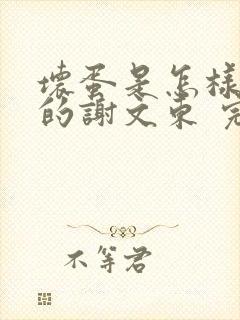 壞蛋是怎樣
的謝文東 完
不等君